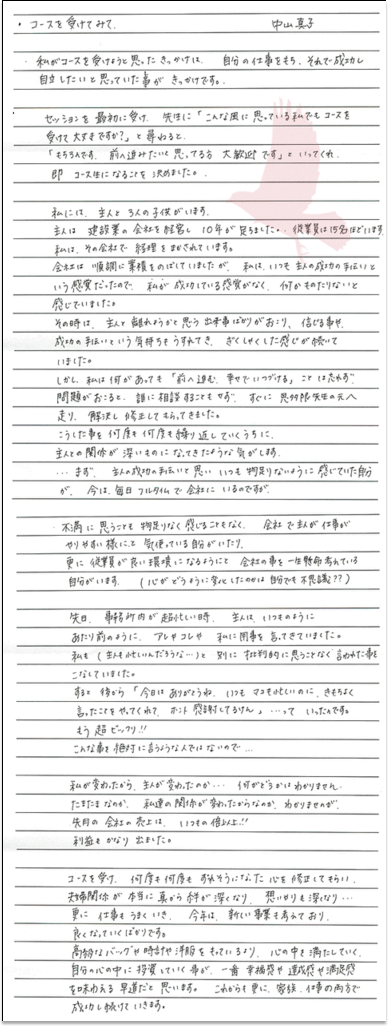 ・コースを受けてみて。 中山真子
・私がコースを受けようと思ったきっかけは、自分の仕事をもち、それで成功し
自立したいと思っていた事がきっかけです。
セッションを最初に受け、先生に「こんな風に思っている私でもコースを
受けて大丈夫ですか?」と尋ねると、
「もちろんです。前へ進みたいと思ってる方大歓迎です」といってくれ、
即コース生になることを決めました。
私には、主人と3人の子供がいます。
主人は建設業の会社を経営し10年が足ちました。従業員は15名ほどいます。
私は、その会社で経理をまかされています。
会社は順調に業績をのばしていましたが、私は、いつも主人の成功の手伝いと
いう感覚だったので、私が成功している感覚がなく、何かものたりないと
感じでいました。
その時は、主人と離れようかと思う出来事ばかりがおこり、信じる事や、
成功の手伝いという気持ちもうすれてき、ぎくしゃくした感じが続いて
いました。
しかし、私は何があっても「前へ進む、幸せでいつづける」ことは忘れず、
問題がおこると、誰に相談することもせず、すぐに先生の元へ
走り、解決し修正してもらってきました。
こうした事を何度も何度も繰り返していくうちに、
主人との関係が深いものになってきたような気がします。
…まず、主人の成功の手伝いと思いいつも物足りないように感じていた自分
が、今は、毎日フルタイムで会社にいるのですが、
・不満に思うことも物足りなく感じることもなく、会社で主人が仕事が
やりやすい様にと気使っている自分がいたり、
更に従業員が良い環境になるようにと会社の事を一生懸命考えている
自分がいます。(心がどうように変化したのかは自分でも不思議??)
先日、事務所内が超忙しい時、主人は、いつものように
あたり前のように、アレやコレや私に用事を言ってきていました。
私も(主人も忙しいんだろうな…)と別に批判的に思うことなく言われた事を
こなしていました。
すると後から「今日はありがとうね、いつもマコも忙しいのに、きもちよく
言ったことをやってくれて、ホント感謝してるけん」…っていったんです。
もう超ビックリ!!
こんな事を絶対に言うような人ではないので…
私が変わったから、主人が変わったのか…何がどうかはわかりません。
たまたまなのか、私達の関係が変わったからなのか、わかりませんが、
先月の会社の売上は、いつもの倍以上!!
利益もかなり出ました。
コースを受け、何度も何度もずれそうになった心を修正してもらい、
夫婦関係が本当に真から絆が深くなり、想いやりも深くなり…
更に仕事もうまくいき、今年は、新しい事業も考えており、
良くなっていくばかりです。
高額なバッグや時計や洋服をもっているより、心の中を満たしていく、
自分の心の中に投資していく事が、一番幸福感や達成感や満足感
を味わえる早道だと思います。これからも更に、家族、仕事の両方で
成功し続けていきます。